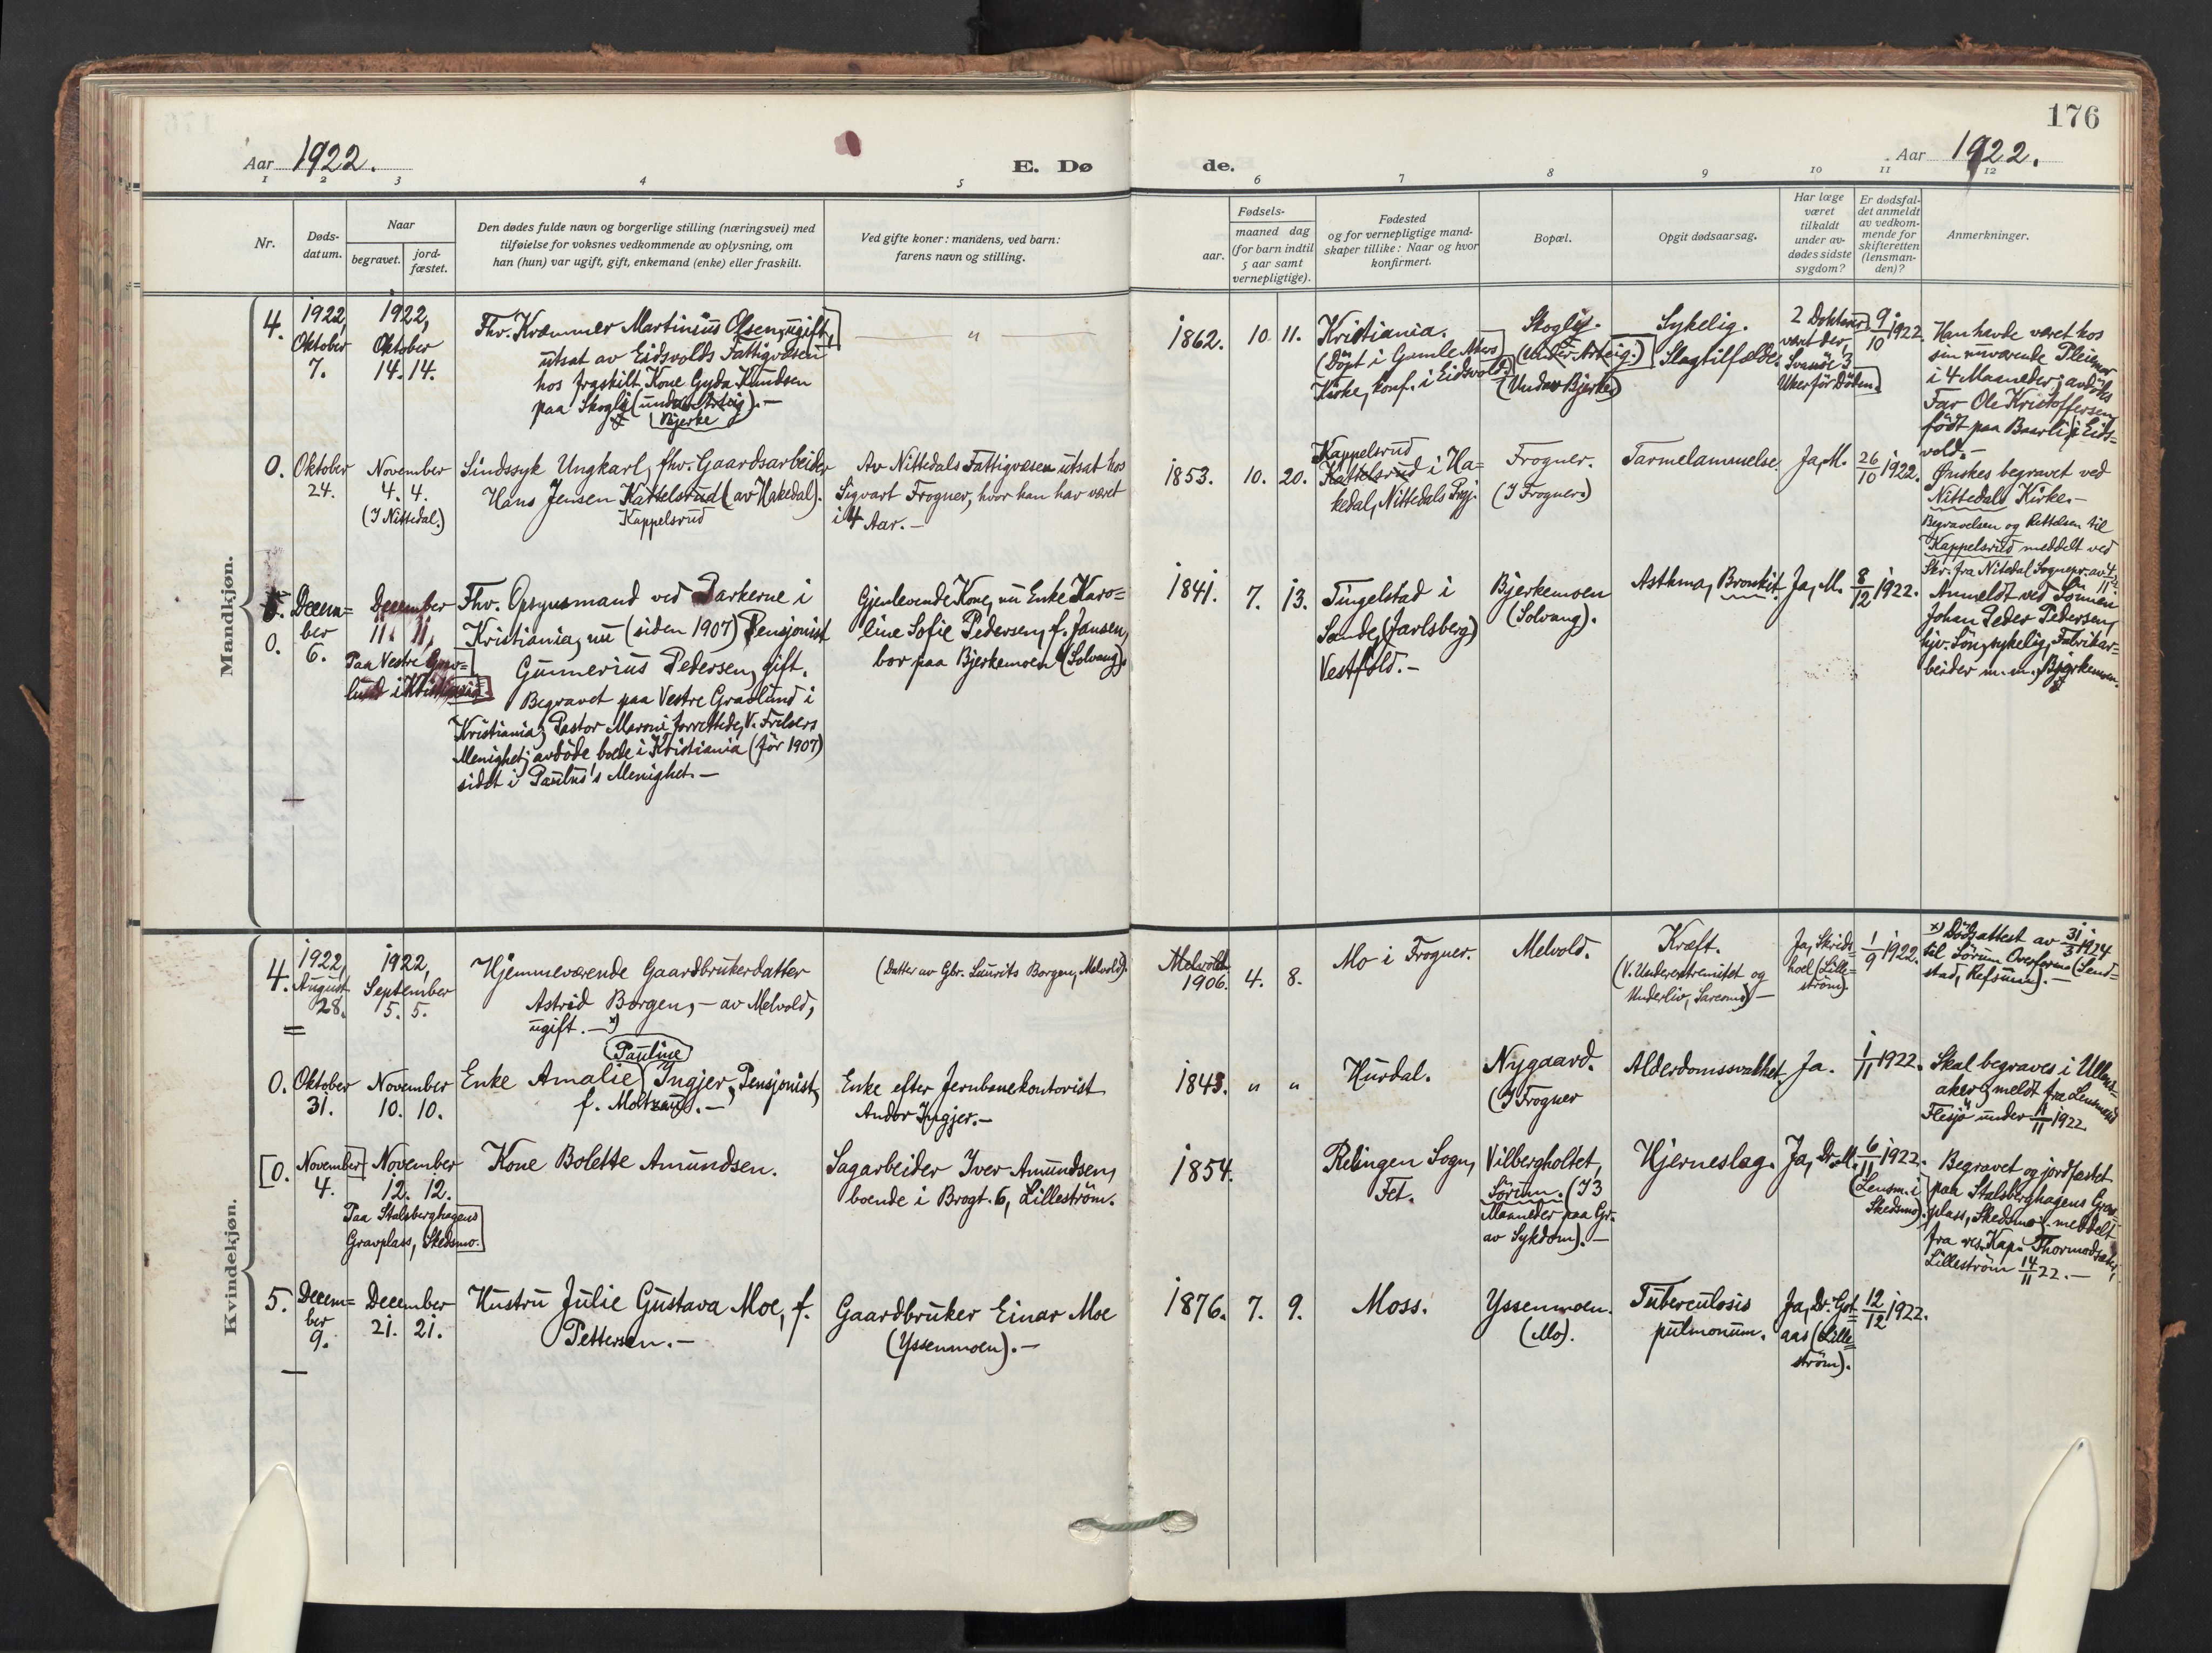 176
Aar 1922.
E. Dø
de.
Aar 1922.
1 2 3 4 5 6 7 8 9 10 11 12
Nr.
Døds-
datum.
Naar
begravet.
jord-
fæstet.
Den dødes fulde navn og borgerlige stilling (næringsvei) med
tilføielse for voksnes vedkommende av oplysning, om
han (hun) var ugift, gift, enkemand (enke) eller fraskilt.
Ved gifte koner: mandens, ved barn:
farens navn og stilling.
Fødsels-
aar.
maaned dag
(for barn indtil
5 aar samt
vernepligtige).
Fødested
og for vernepligtige mand-
skaper tillike: Naar og hvor
konfirmert.
Bopæl.
Opgit dødsaarsag.
Har læge
været
tilkaldt
under av-
dødes sidste
sygdom?
Er dødsfal-
det anmeldt
av vedkom-
mende for
skifteretten
(lensman-
den)?
Anmerkninger.
Mandkjøn.
4.
1922,
Oktober
7.
1922,
Oktober
14. 14.
Thv. Kræmmer Martinius Olsen, ugift,
utsat av Eidsvolds Fattigvæsen
hos fraskilt Kone Gyda Knudsen
paa Skogly (under Arteig).-
Bjerke
"
1862. 10 11.
Kristiania.
(Döpt i Gamle Akers
Kirke, konf. i Eidsvold.)
Skogly.
(Under Arteig.)
(Under Bjerke)
Sykelig.
Slagtilfælde.
2 Doktorer
vært der,
Svanöe 3
Uker för Döden.
9/10 1922.
Han havde været hos
sin nuværende Pleiemor
i 4 Maaneder; avdödes
Far Ole Kristoffersen,
født paa Baarli i Eids-
vold.-
0.
Oktober
24.
November
4. 4.
(I Nittedal.)
Sindssyk Ungkarl, fhv. Gaardsarbeider
Hans Jensen Kattelsrud (av Hakedal).
Kappelsrud
Av Nittedals Fattigvæsen utsat hos
Sigvart Frogner, hvor han har været
i 4 Aar.-
1853. 10. 20.
Kappelsrud
Kattelsrud i Ha-
kedal, Nittedals Prgj.
Frogner.
(I Frogner.)
Tarmelammelse.
Ja, M.
26/10 1922.
Ønskes begravet ved
Nittedals Kirke.-
Begravelsen og Rettelsen til
Kappelsrud meddelt ved
Skr. fra Nitedal Sognepr. av 4/11 22.
5.
0.
Decem-
ber
6.
December
11. 11.
Paa Vestre Grav-
lund i Kristiania
Fhv. Opsynsmand ved Parkerne i
Kristiania, nu (siden 1907) Pensjonist
Gunnerius Pedersen, gift.
Begravet paa Vestre Gravlund i
Kristiania; Pastor Maroni forrettede, V. Frelsers
Menighet; avdöde boede i Kristiania (för 1907)
sidst i Paulus's Menighet.-
Gjenlevende Kone, nu Enke Karo-
line Sofie Pedersen, f. Jansen,
bor paa Bjerkemoen (Solvang).
1841. 7. 13.
Tingelstad i
Sande, (Jarlsberg)
Vestfold.-
Bjerkemoen
(Solvang).
Asthma, Bronkit.
Ja, M.
8/12 1922.
Anmeldt ved Sønnen
Johan Peder Pedersen,
hjv. Sön, sykelig, Fabrikar-
beider m.m., Bjerkemoen.
Kvindekjøn.
4.
1922,
August
28.
1922,
September
5. 5.
Hjemmeværende Gaardbrukerdatter
Astrid Borgen, - av Melvold,
ugift.- x)
(Datter av Gbr. Laurits Borgen, Melvold).
Melvold.
1906. 4. 8.
Mo i Frogner.
Melvold.
Kræft.
(V. Underextremitet og
Underliv, Sarcoma)-
Ja, Skrids-
hoel (Lille-
ström).
1/9 1922.
x) Dödsattest av 31/3 1924
til Sörum Overform. (Send-
stad, Refsum).-
0.
Oktober
31.
November
10. 10.
Pauline
Enke Amalie Ingjer, Pensjonist,
f. Moltzaus.-
Enke efter Jernbanekontorist
Andor Ingjer.-
1843. " "
Hurdal.
Nygaard.
(I Frogner
Alderdomssvakhet.
Ja.
1/11 1922.
Skal begraves i Ullens-
aker; meldt fra Lensmand
Flesjö under 1/11 1922.
[0.
November
4.
November
12. 12.
Paa Stalsberghagens
Gravplass, Skedsmo.
Kone Bolette Amundsen.
Sagarbeider Iver Amundsen,
boende i Brogt. 6, Lilleström.
1854.
Relingen Sogn,
Fet.
Vilbergholtet,
Sörum. (I 3
Maaneder paa Gr.
av Sykdom).-
Hjerneslag.
Ja, Dr. M.
6/11 1922.
(Lensm. i
Skedsmo).
Begravet og jordfæstet
paa Stalsberghagens Grav-
plass, Skedsmo; meddelt
fra res. Kap. Thormodsæter,
Lilleström 14/11 22.-
5.
Decem-
ber
9.
December
21. 21.
Hustru Julie Gustava Moe, f.
Pettersen.-
Gaardbruker Einar Moe
(Yssenmoen).-
1876. 7. 9.
Moss.
Yssenmoen.
(Mo).
Tuberculosis
pulmonum.
Ja, Dr. Got-
aas (Lille-
ström).
12/12 1922.